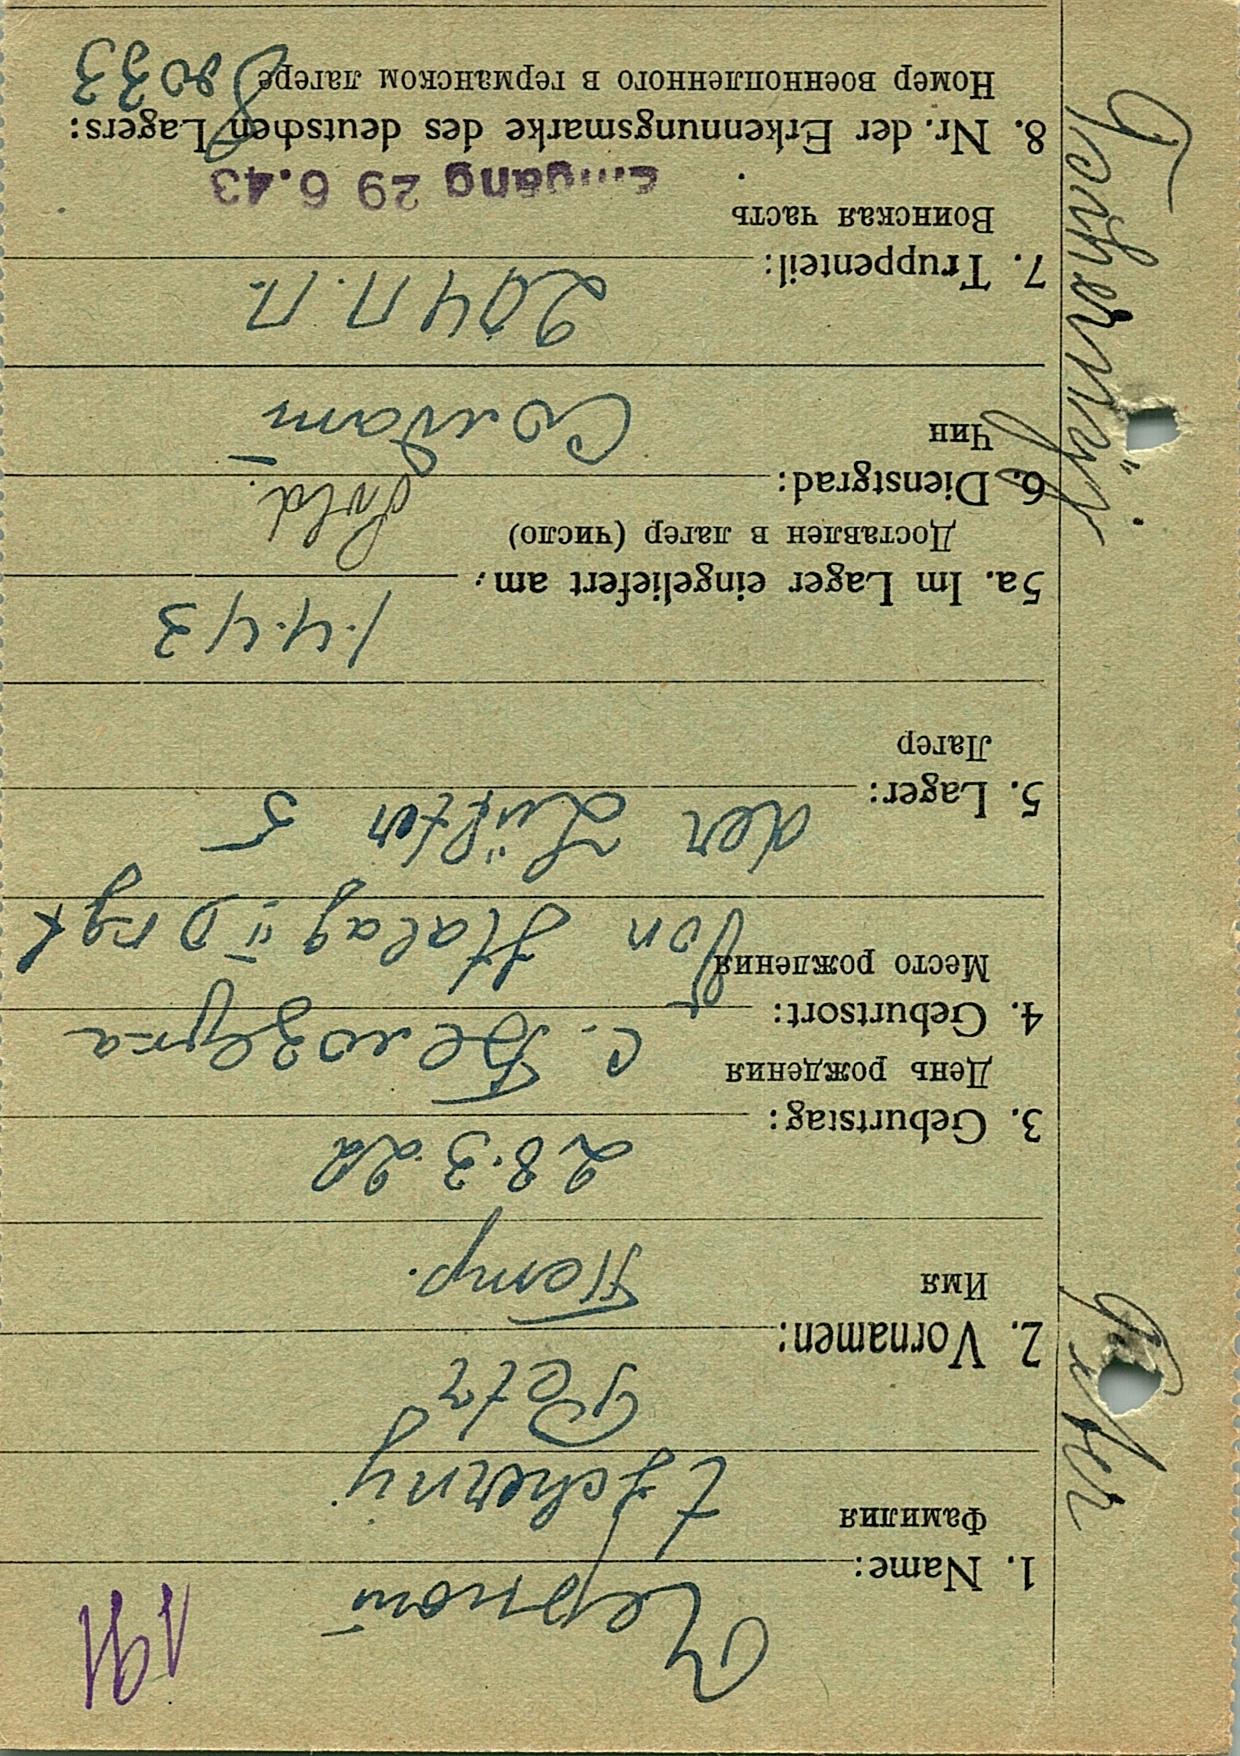 191
Черной
1. Name:
Фамилия
tscherny
Petr
2. Vornamen:
Имя
Петр.
28.3.22
3. Geburtstag:
День рождения
с. Белозерка
4. Geburtsort:
Место рождения
Von Stalag II D rgt
der Lüfter 5
5. Lager:
Лагер
1.4.43
5a. Im Lager eingeliefert am:
Доставлен в лагер (число)
Sold.
6. Dienstgrad:
Чин
Солдат
204 п.п.
7. Truppenteil:
Воинская часть
Eingang 29 6.43
8. Nr. der Erkennungsmarke des deutschen Lagers:
Номер военнопленного в германском лагере
Peter